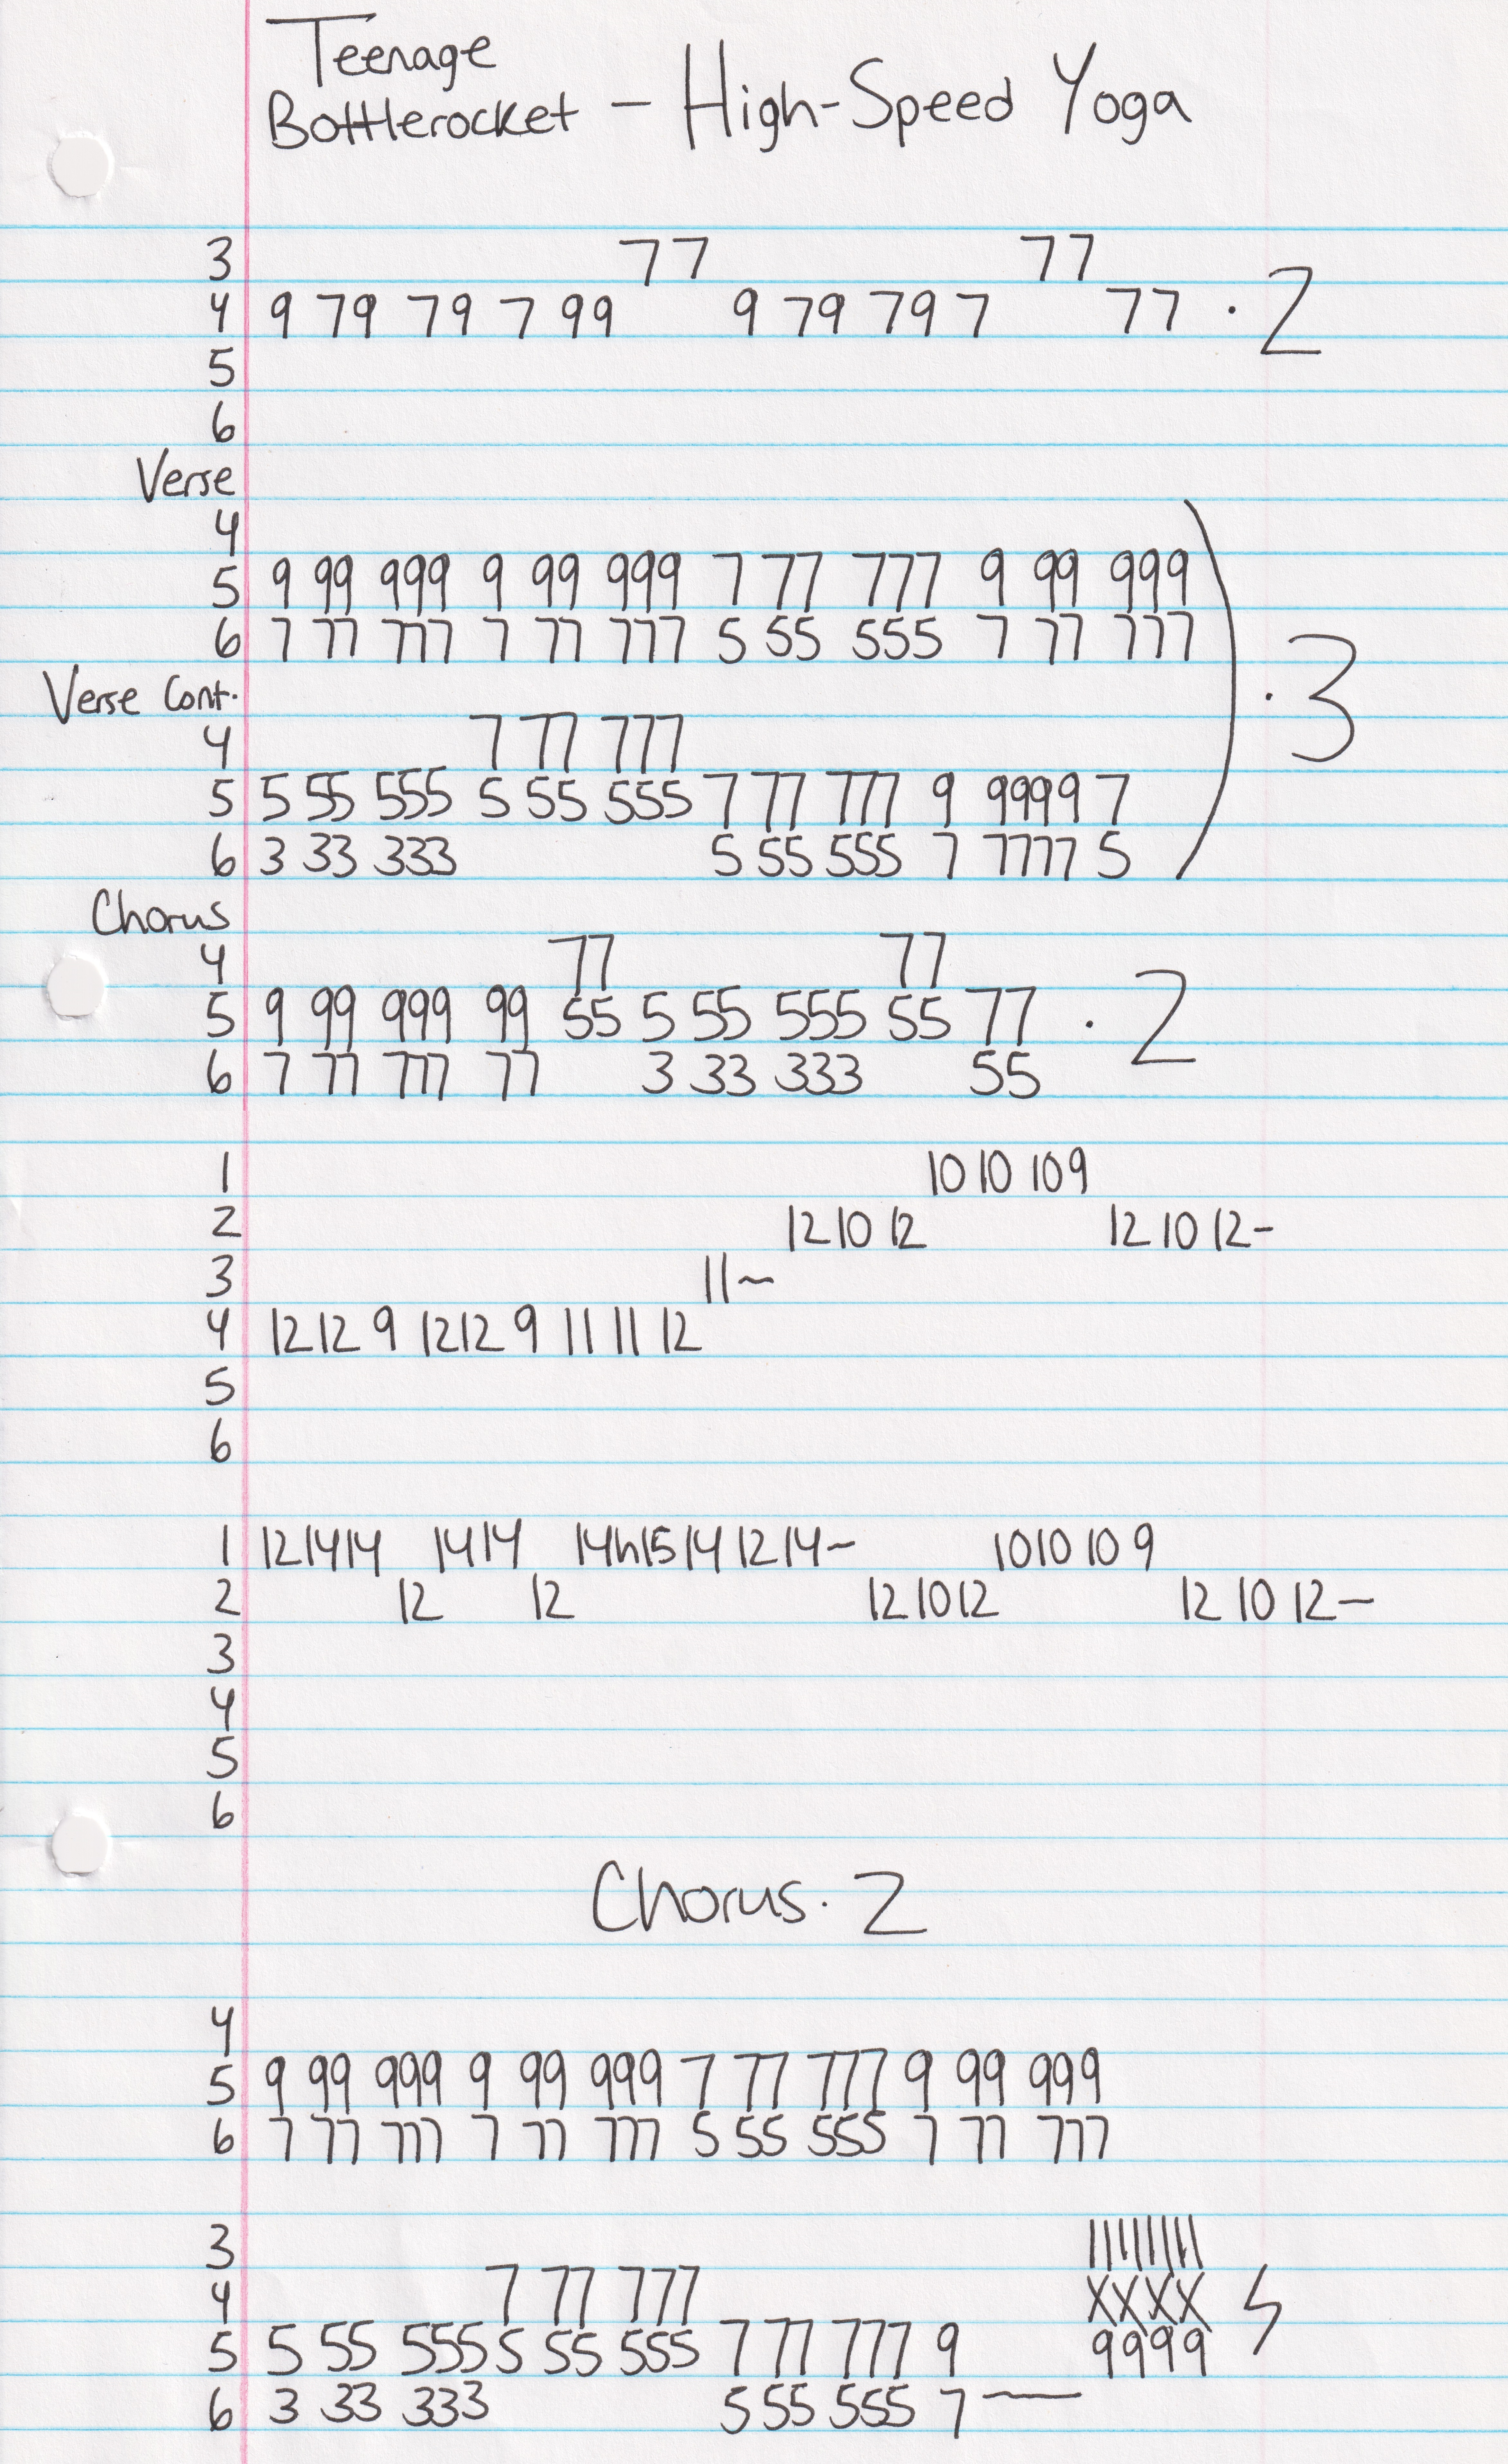 Teenage
Bottlerocket - High-Speed Yoga
3 77 77
4 9 79 79 7 99 9 79 79 7 77 · 2
5
6
Verse
4
5 9 99 999 9 99 999 7 77 777 9 99 999
6 7 77 777 7 77 777 5 55 555 7 77 777
· 3
Verse Cont.
4 7 77 777
5 5 55 555 5 55 555 7 77 777 9 9999 7
6 3 33 333 5 55 555 7 7777 5
Chorus
4 77 77
5 9 99 999 99 55 5 55 555 55 77 · 2
6 7 77 777 77 3 33 333 55
1 10 10 10 9
2 12 10 12 12 10 12-
3 11~
4 12 12 9 12 12 9 11 11 12
5
6
1 12 14 14 14 14 14h15 14 12 14~ 10 10 10 9
2 12 12 12 10 12 12 10 12-
3
4
5
6
Chorus · 2
4
5 9 99 999 9 99 999 7 77 777 9 99 999
6 7 77 777 7 77 777 5 55 555 7 77 777
3 11 11 11 11
4 7 77 777 XXXX
5 5 55 555 5 55 555 7 77 777 9 9999
6 3 33 333 5 55 555 7-